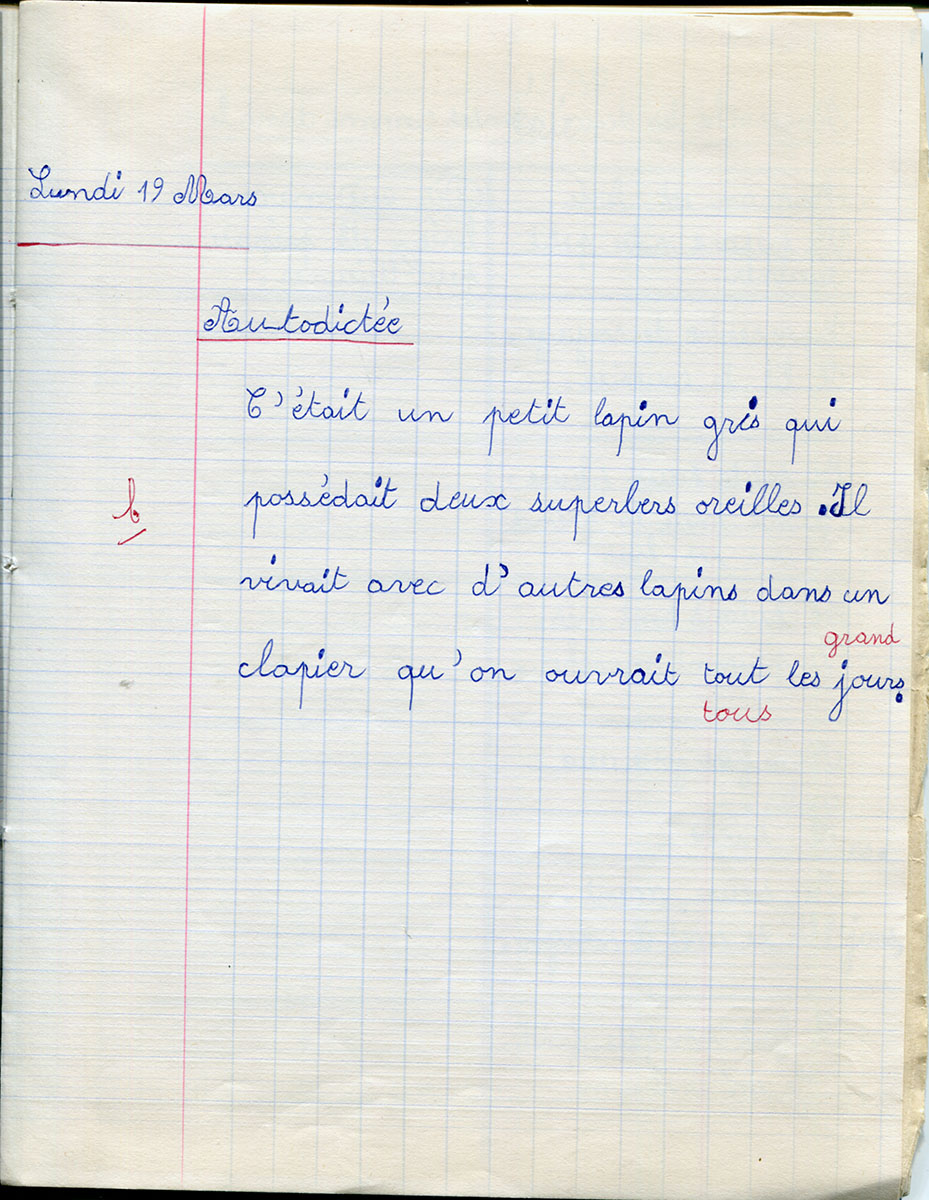 Lundi 19 Mars
Autodictée
C'était un petit lapin gris qui
b
possédait deux superbers oreilles. Il
vivait avec d'autres lapins dans un
grand
clapier qu'on ouvrait tout les jours.
tous